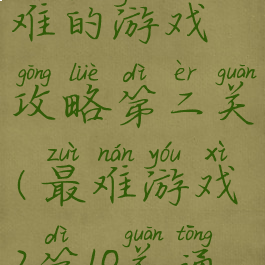 难的游戏
gōng lüè dì èr guān
攻略第二关
zuì nán yóu xì
(最难游戏
dì guān tōng
2第10关通